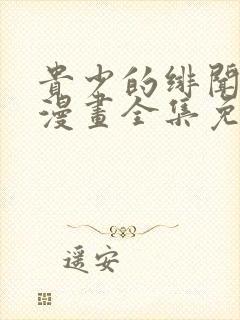 貴少的緋聞
漫畫全集免
遥安